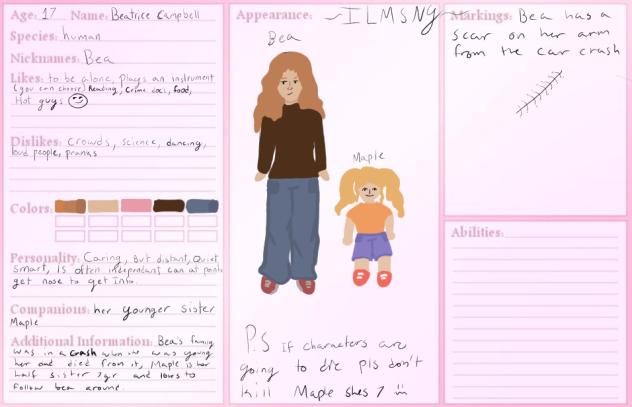 Age: 17 Name: Beatrice Campbell
Species: human
Nicknames: Bea
Likes: to be alone, plays an instrument
(you can choose) Reading, Crime docs, food,
Hot guys
Dislikes: Crowds, science, dancing,
loud people, pranks
Colors:
Personality: Caring, But distant, Quiet,
smart, Is often independant can at points
get nose to get into.
Companions: her younger sister
Maple
Additional Information: Bea's family
was in a crash when she was young
her dad died from it, Maple is her
half sister 7yr and loves to
follow bea around.
Appearance: ~ILMSNy~
Bea
Maple
P.S If characters are
going to die pls don't
kill Maple shes 7
Markings: Bea has a
scar on her arm
from the car crash
Abilities: